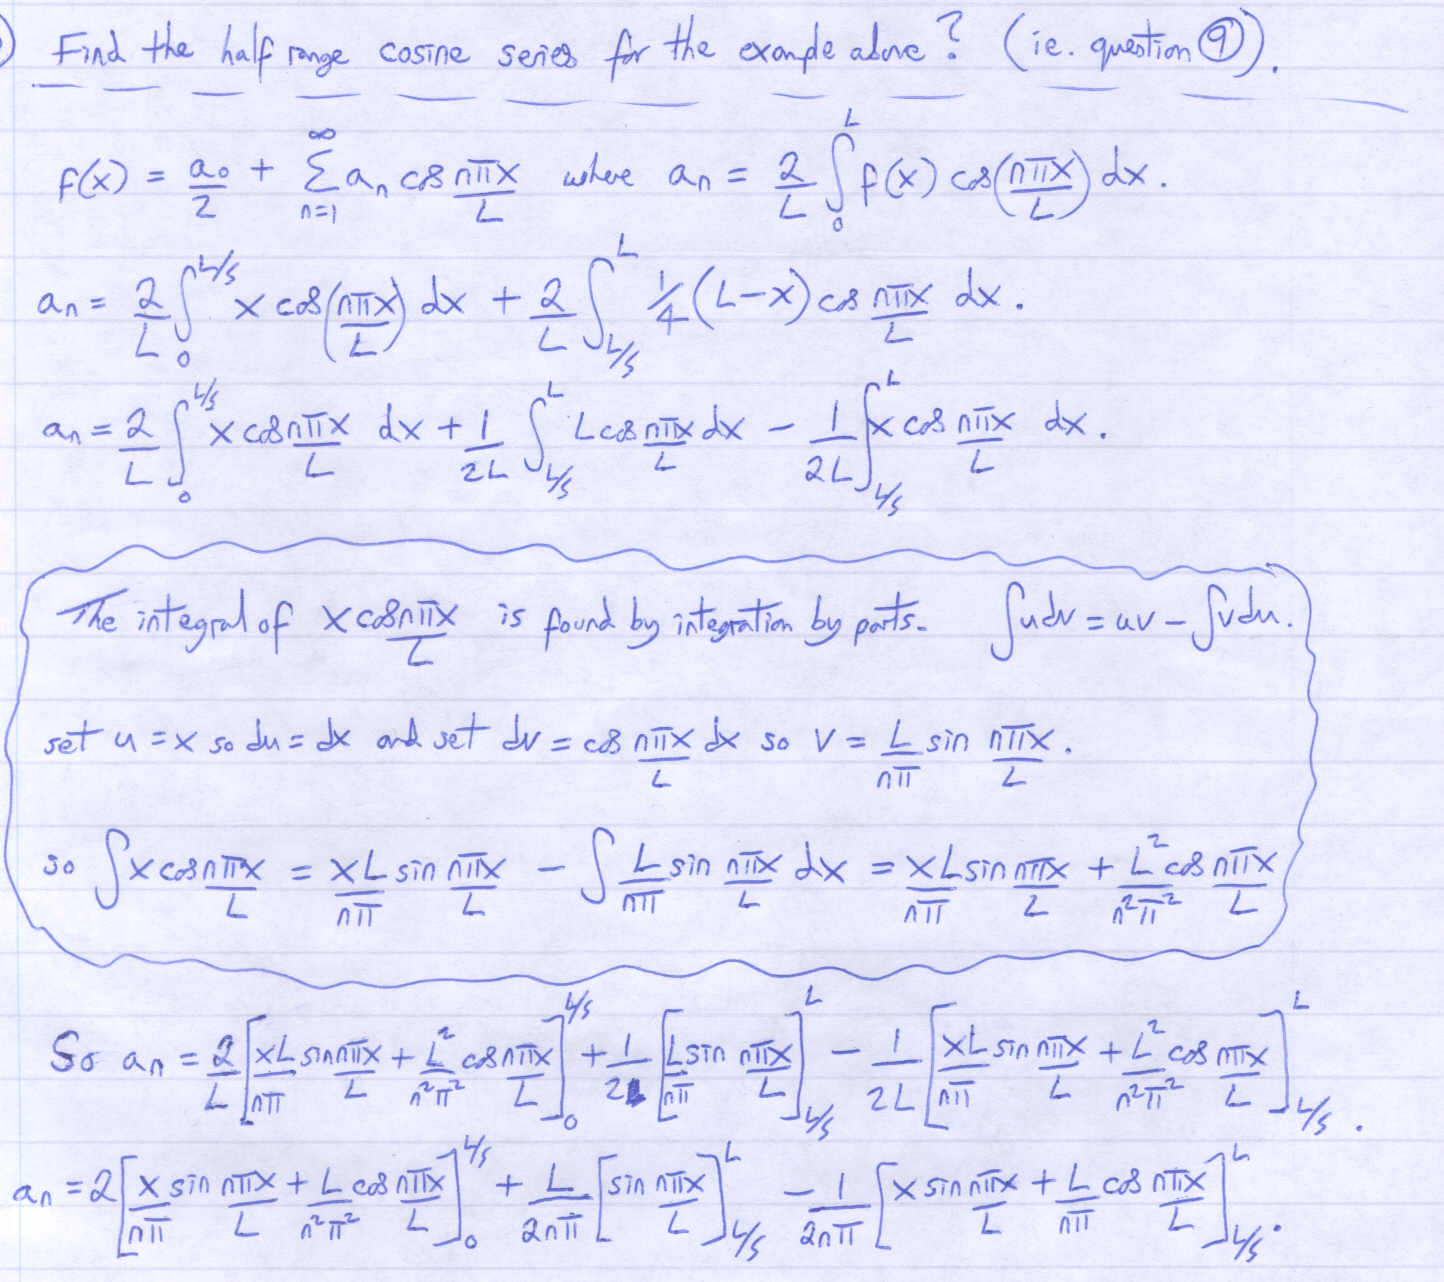 Find the half range cosine series for the example above? (ie. question ⑨).
f(x) = a₀/2 + ∑_{n=1}^{∞} aₙ cos nπx/L where aₙ = 2/L ∫₀^L f(x) cos(nπx/L) dx.
aₙ = 2/L ∫₀^{L/5} x cos(nπx/L) dx + 2/L ∫_{L/5}^L 1/4 (L-x) cos nπx/L dx.
aₙ = 2/L ∫₀^{L/5} x cos nπx/L dx + 1/2L ∫_{L/5}^L L cos nπx/L dx - 1/2L ∫_{L/5}^L x cos nπx/L dx.
The integral of x cos nπx/L is found by integration by parts. ∫udv = uv - ∫vdu.
set u = x so du = dx and set dv = cos nπx/L dx so v = L/nπ sin nπx/L.
so ∫x cos nπx/L = xL/nπ sin nπx/L - ∫ L/nπ sin nπx/L dx = xL/nπ sin nπx/L + L²/n²π² cos nπx/L
So aₙ = 2/L [xL/nπ sin nπx/L + L²/n²π² cos nπx/L]₀^{L/5} + 1/2 [L/nπ sin nπx/L]_{L/5}^L - 1/2L [xL/nπ sin nπx/L + L²/n²π² cos nπx/L]_{L/5}^L.
aₙ = 2[x/nπ sin nπx/L + L/n²π² cos nπx/L]₀^{L/5} + L/2nπ [sin nπx/L]_{L/5}^L - 1/2nπ [x sin nπx/L + L/nπ cos nπx/L]_{L/5}^L.